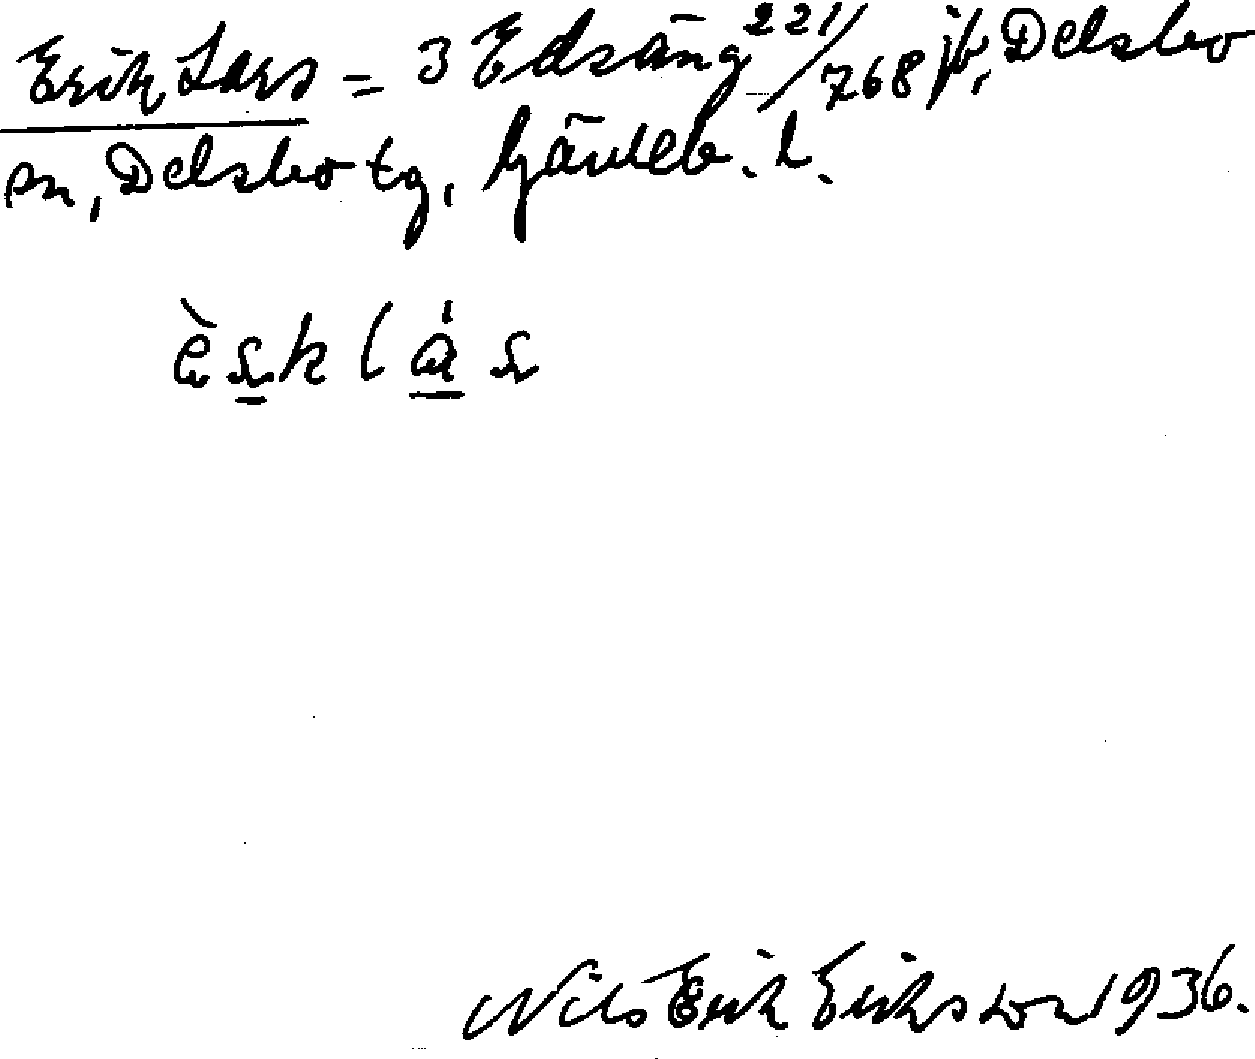 Erik Lars = 3 Edsäng 221/768 jb, Delsbo
sn, Delsbo tg, Gävleb. l.
èsklás
Nils Erik Eriksson 1936.